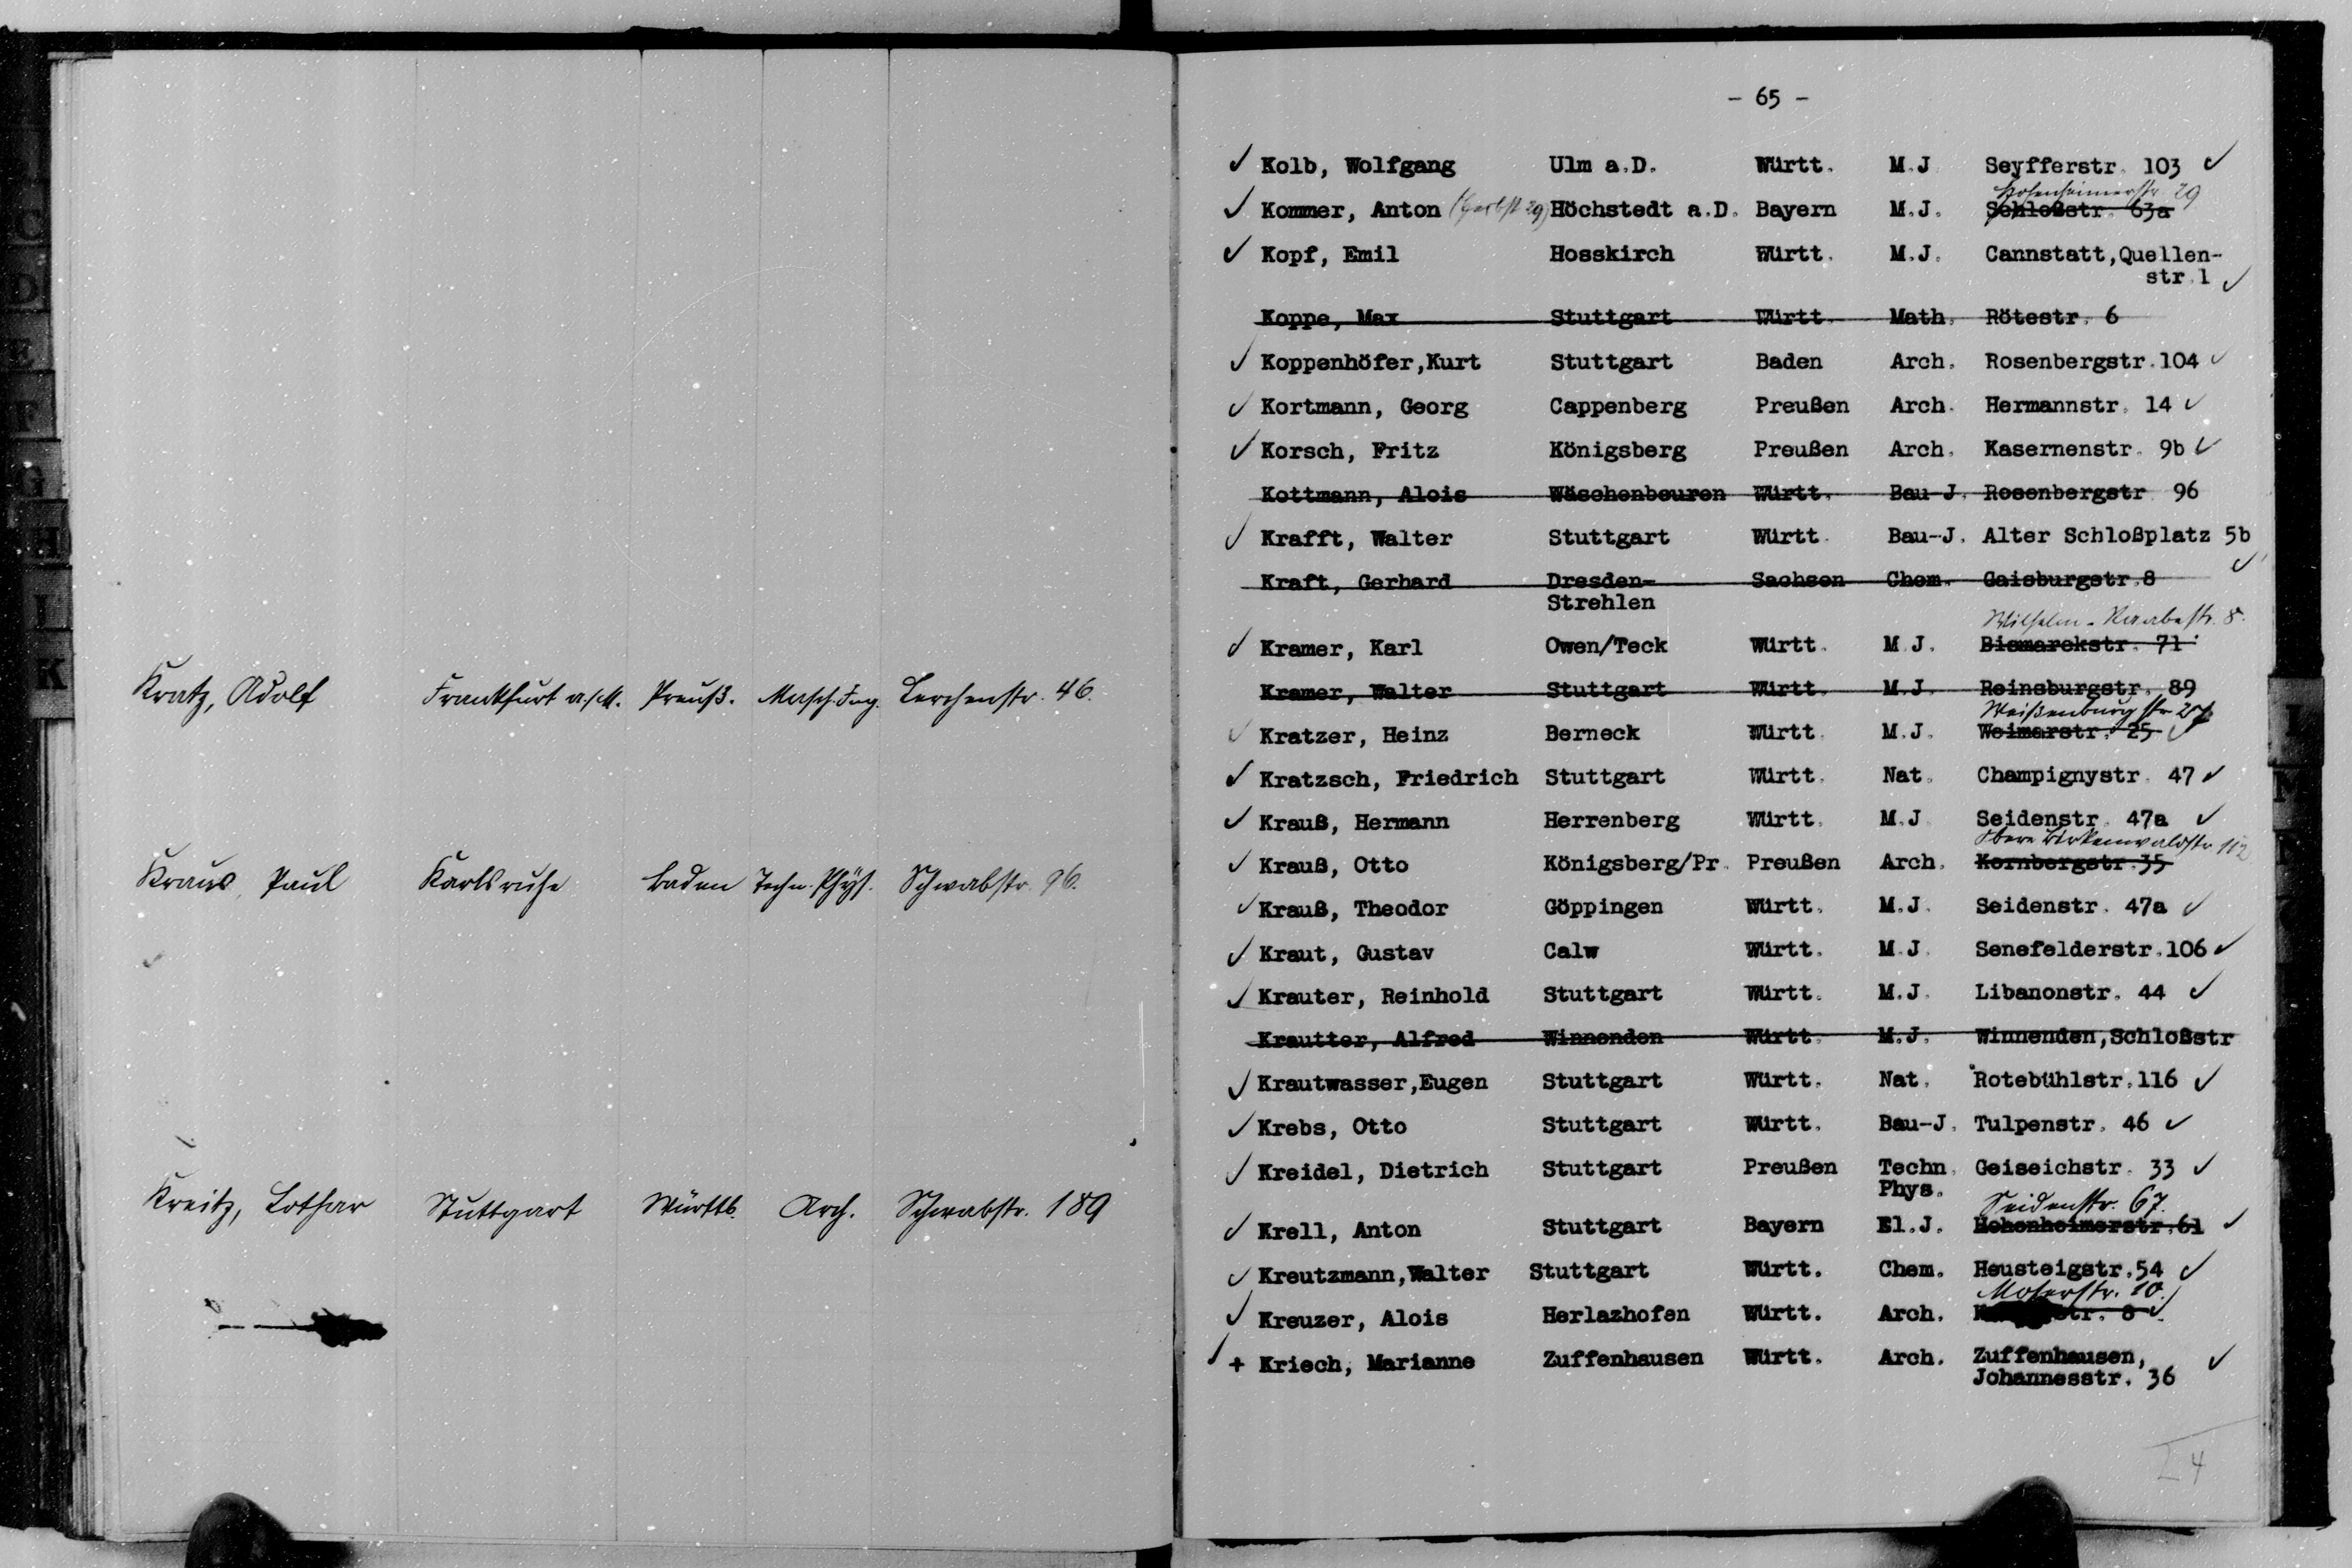 C
D
E
F
G
H
I
K
Kratz, Adolf Frankfurt a./M. Preuß. Masch. Ing. Lerchenstr. 46.
Kraus, Paul Karlsruhe Baden Techn. Phys. Schwabstr. 96.
Kreitz, Lothar Stuttgart Württb. Arch. Schwabstr. 189
- 65 -
✓ Kolb, Wolfgang Ulm a.D. Württ. M.J Seyfferstr. 103 ✓
Hohenheimerstr. 29
✓ Kommer, Anton (Herbst 29) Höchstedt a.D. Bayern M.J. Schloßstr. 63a
✓ Kopf, Emil Hosskirch Württ. M.J. Cannstatt,Quellen-
str.1 ✓
Koppe, Max Stuttgart Württ. Math. Rötestr. 6
✓ Koppenhöfer,Kurt Stuttgart Baden Arch. Rosenbergstr.104 ✓
✓ Kortmann, Georg Cappenberg Preußen Arch. Hermannstr. 14 ✓
✓ Korsch, Fritz Königsberg Preußen Arch. Kasernenstr. 9b ✓
Kottmann, Alois Wäschenbeuren Württ. Bau-J. Rosenbergstr 96
✓ Krafft, Walter Stuttgart Württ. Bau-J. Alter Schloßplatz 5b
✓
Kraft, Gerhard Dresden- Sachsen Chem. Gaisburgstr.8
Strehlen
Wilhelm-Raabestr. 8.
✓ Kramer, Karl Owen/Teck Württ. M.J. Bismarckstr. 71
Kramer, Walter Stuttgart Württ. M.J. Reinsburgstr. 89
Weißenburgstr. 27
✓ Kratzer, Heinz Berneck Württ. M.J. Weimarstr. 25 ✓
✓ Kratzsch, Friedrich Stuttgart Württ. Nat. Champignystr. 47 ✓
✓ Krauß, Hermann Herrenberg Württ. M.J Seidenstr. 47a ✓
Obere Birkenwaldstr 112
✓ Krauß, Otto Königsberg/Pr. Preußen Arch. Kornbergstr.35
✓ Krauß, Theodor Göppingen Württ. M.J. Seidenstr. 47a ✓
✓ Kraut, Gustav Calw Württ. M.J. Senefelderstr.106 ✓
✓ Krauter, Reinhold Stuttgart Württ. M.J. Libanonstr. 44 ✓
Krautter, Alfred Winnenden Württ. M.J. Winnenden,Schloßstr
✓ Krautwasser,Eugen Stuttgart Württ. Nat. Rotebühlstr.116 ✓
✓ Krebs, Otto Stuttgart Württ. Bau-J. Tulpenstr. 46 ✓
✓ Kreidel, Dietrich Stuttgart Preußen Techn. Geiseichstr. 33 ✓
Phys.
Seidenstr. 67.
✓ Krell, Anton Stuttgart Bayern El.J. Hohenheimerstr.61 ✓
✓ Kreutzmann,Walter Stuttgart Württ. Chem. Heusteigstr.54 ✓
Moserstr. 10.
✓ Kreuzer, Alois Herlazhofen Württ. Arch. str. 8 ✓
✓ + Kriech, Marianne Zuffenhausen Württ. Arch. Zuffenhausen, ✓
Johannesstr. 36